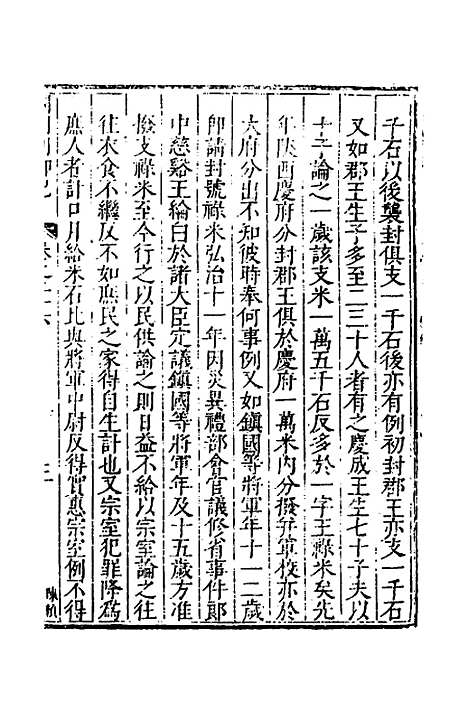 千石以後襲封俱支一千石後亦有例初封郡王亦支一千石
又如郡王生子多至二三十人者有之慶成王生七十子夫以
十子論之一歲該支米一萬五千石反多於一字王祿米矣先
年陝西慶府分封郡王俱於慶府一萬米內分撥弁軍校亦於
大府分出不知彼時奉何事例又如鎮國等將軍年十一二歲
即請封號祿米弘治十一年因災異禮部會官議修省事件郎
中慈谿王綸白於諸大臣定議鎮國等將軍年及十五歲方准
撥支祿米至今行之以民供論之則日益不給以宗室論之往
往衣食不繼反不如庶民之家得自生計也又宗室犯罪降為
庶人者計口月給米石比與將軍中尉反得實惠宗室例不得